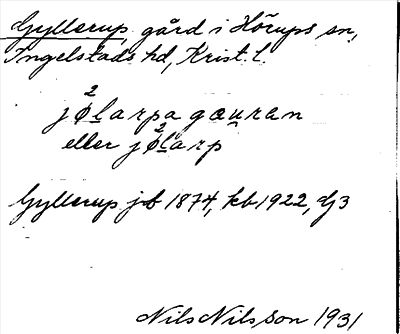 Gyllerup, gård i Hörups sn,
Ingelstads hd, Krist. l.
jø²larpa gæuran
eller jø²larp
Gyllerup jb 1874, kb 1922, Dj3
Nils Nilsson 1931